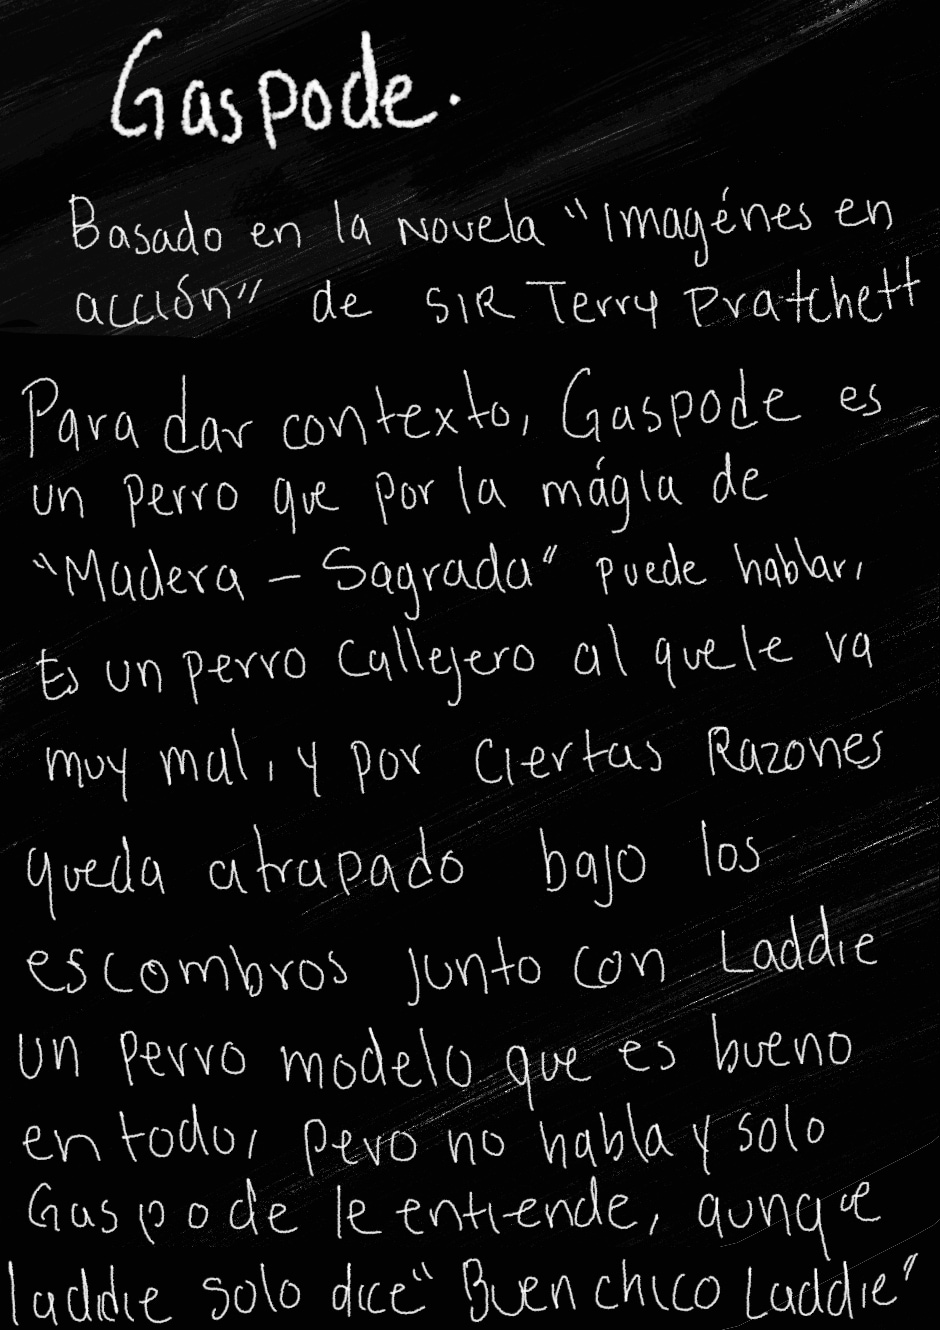 Gaspode.
Basado en la novela "Imagénes en
acción" de SIR Terry Pratchett
Para dar contexto, Gaspode es
un perro que por la mágia de
"Madera - Sagrada" puede hablar,
Es un perro callejero al que le va
muy mal, y por ciertas Razones
queda atrapado bajo los
escombros junto con Laddie
un perro modelo que es bueno
en todo, pero no habla y solo
Gaspode le entiende, aunque
laddie solo dice "Buen chico Laddie"